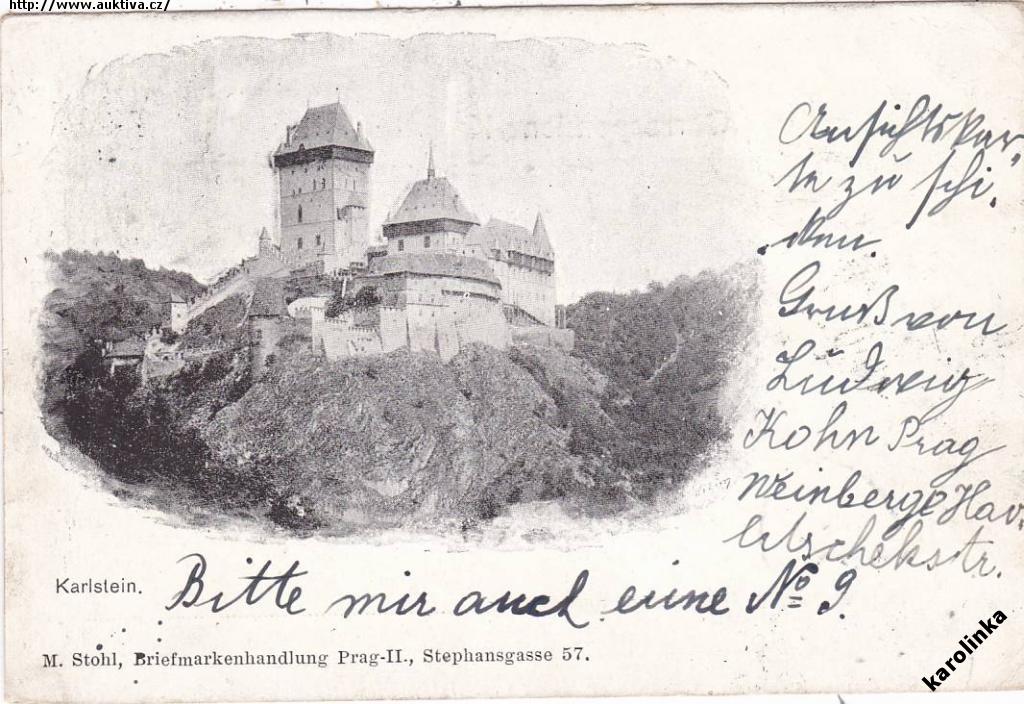 http://www.auktiva.cz/
Karlstein.
Bitte mir auch eine
Ansichtskar-
te zu schi-
cken.
Gruß von
Ludwig
Kohn Prag
Weinberge Hav-
litschekstr.
No 9.
M. Stohl, Briefmarkenhandlung Prag-II., Stephansgasse 57.
karolinka